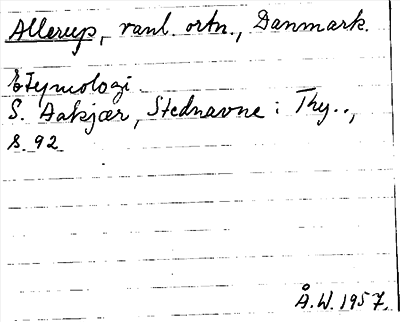 Allerup, vanl. ortn., Danmark.
Etymologi
S. Aakjær, Stednavne i Thy..,
s. 92
Å.W. 1957.